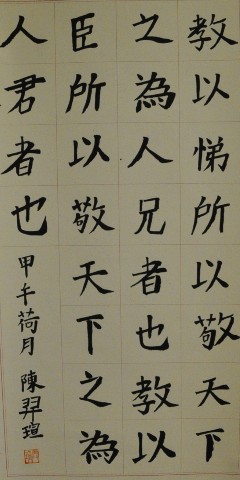 教以悌所以敬天下
之為人兄者也教以
臣所以敬天下之為
人君者也
甲午荷月 陳羿瑄